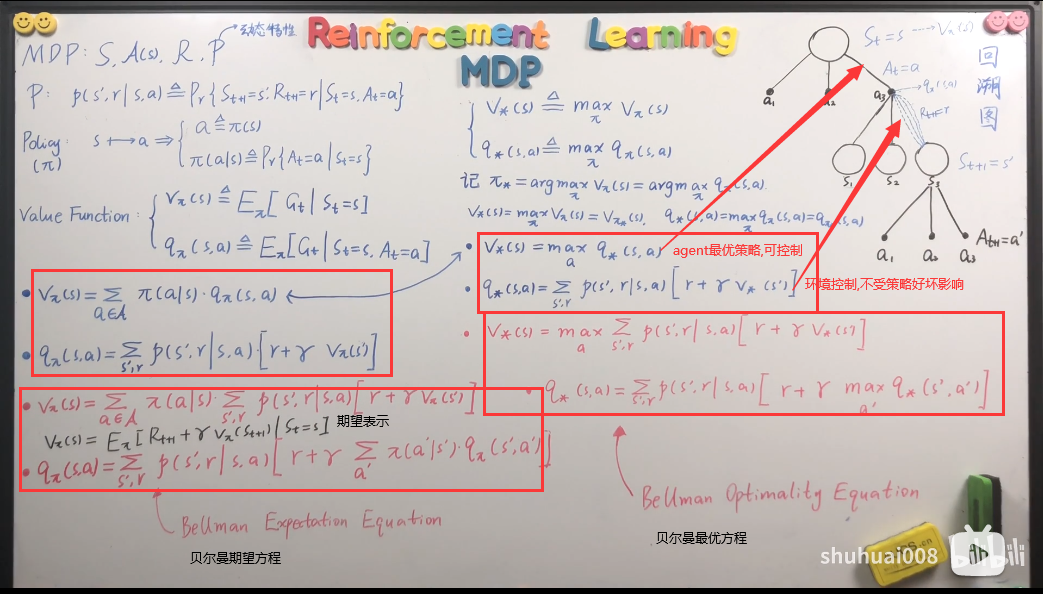 Reinforcement Learning
MDP
MDP: S, A(s), R, P → 动态特性
P: p(s',r|s,a) ≜ Pr{S_{t+1}=s', R_{t+1}=r | S_t=s, A_t=a}
Policy (π) s ↦ a ⇒ { a ≜ π(s)
π(a|s) ≜ Pr{A_t=a | S_t=s}
Value Function: { V_π(s) ≜ E_π[G_t | S_t=s]
q_π(s,a) ≜ E_π[G_t | S_t=s, A_t=a]
• V_π(s) = Σ_{a∈A} π(a|s)·q_π(s,a)
• q_π(s,a) = Σ_{s',r} p(s',r|s,a)·[r+γ V_π(s')]
• V_π(s) = Σ_{a∈A} π(a|s)·Σ_{s',r} p(s',r|s,a)[r+γ V_π(s')]
V_π(s) = E_π[R_{t+1}+γ V_π(S_{t+1}) | S_t=s] 期望表示
• q_π(s,a) = Σ_{s',r} p(s',r|s,a)[r+γ Σ_{a'} π(a'|s')·q_π(s',a')]
Bellman Expectation Equation
贝尔曼期望方程
{ V_*(s) ≜ max_π V_π(s)
q_*(s,a) ≜ max_π q_π(s,a)
记 π_* = argmax_π V_π(s) = argmax_π q_π(s,a).
V_*(s) = max_π V_π(s) = V_{π*}(s), q_*(s,a) = max_π q_π(s,a) = q_{π*}(s,a)
• V_*(s) = max_a q_*(s,a) agent最优策略,可控制
• q_*(s,a) = Σ_{s',r} p(s',r|s,a)[r+γ V_*(s')] 环境控制,不受策略好坏影响
• V_*(s) = max_a Σ_{s',r} p(s',r|s,a)[r+γ V_*(s')]
• q_*(s,a) = Σ_{s',r} p(s',r|s,a)[r+γ max_{a'} q_*(s',a')]
Bellman Optimality Equation
贝尔曼最优方程
S_t=s → V_π(s)
A_t=a
q_π(s,a)
a_1 a_2 a_3
R_{t+1}=r
回溯图
S_{t+1}=s'
s_1 s_2 s_3
A_{t+1}=a'
a_1 a_2 a_3
shuhuai008 bilibili